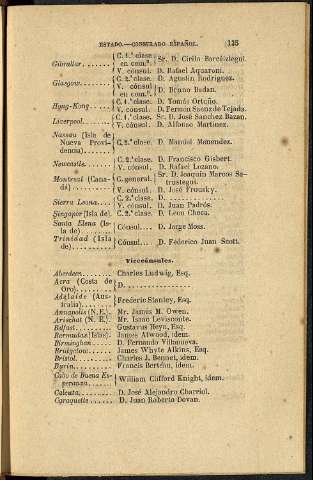 ESTADO.—CONSULADO ESPAÑOL. 135
Gibraltar C. 1.ª clase en com.ⁿ Sr. D. Cirilo Barcáiztegui.
V. cónsul. D. Rafael Aquaroni.
Glasgow C. 2.ª clase. D. Agustin Rodriguez.
V. cónsul en com.ⁿ D. Bruno Badan.
Hong-Kong C. 1.ª clase. D. Tomás Ortuño.
V. cónsul. D. Fermin Saenz de Tejada.
Liverpool C. 1.ª clase. Sr. D. José Sanchez Bazan.
V. cónsul. D. Alfonso Martinez.
Nassau (Isla de
Nueva Provi-
dencia) C. 2.ª clase. D. Manuel Menendez.
Newcastle C. 2.ª clase. D. Francisco Gisbert.
V. cónsul. D. Rafael Lozano.
Montreal (Cana-
dá) C. general. Sr. D. Joaquin Marcos Sa-
trustegui.
V. cónsul. D. José
Sierra Leona C. 2.ª clase. D.
V. cónsul. D. Juan Padrós.
Singapor (Isla de). C. 2.ª clase. D. Leon Checa.
Santa Elena (Is-
la de) Cónsul D. Jorge Moss.
Trinidad (Isla
de) Cónsul D. Federico Juan Scott.
Vicecónsules.
Aberdeen Charles Ludwig, Esq.
Acra (Costa de
Oro) D.
Adelaide (Aus-
tralia) Frederic Stanley, Esq.
Annapolis (N. E.). Mr. James M. Owen.
Arischat (N. E.). Mr. Isaac Levisconte.
Belfast Gustavus Heyn, Esq.
Bermudas (Islas) James Atwood, idem.
Birmingham D. Fernando Villanueva.
Bridgetown James Whyte Alkins, Esq.
Bristol Charles J. Bennet, idem.
Francis Bertém, idem.
Cabo de Buena Es-
peranza William Clifford Knight, idem.
Calcuta D. José Alejandro Charriol.
D. Juan Roberto Dovan.